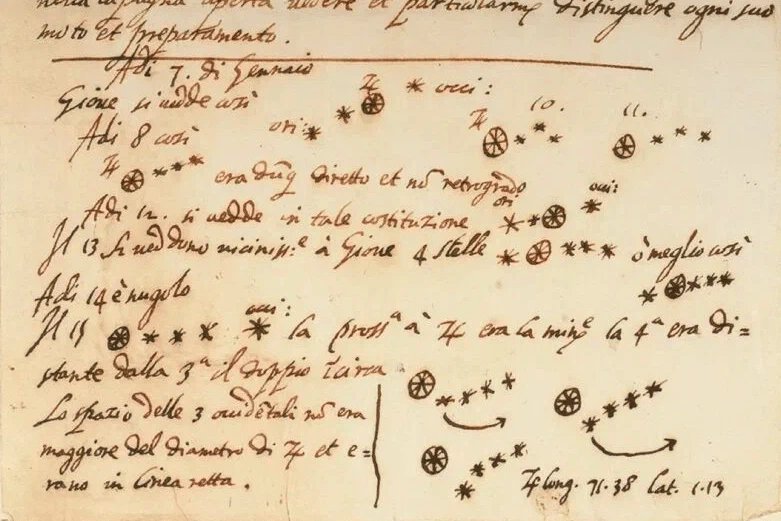 nella campagna aperta vedere et particolarmᵉ distinguere ogni suo
moto et preparamento.
Adi 7. di Gennaio
Giove si vedde così ♃ * * * occi:
Adi 8 così ori: * ♃ 10. 11.
♃ * * * era dūq diretto et nō retrogrado
Adi 12. si vedde in tale costituzione ori * * * occi:
Il 13 si veddono viciniss:ᵉ à Giove 4 stelle * * * * ò meglio così * * * *
Adi 14 è nugolo
Il 15 * * * * occi: la prossᵃ à ♃ era la minᵉ la 4ᵃ era di=
stante dalla 3ᵃ il doppio ĩcirca
Lo spazio delle 3 occidẽtali nō era
maggiore del diametro di ♃ et e=
rano in linea retta.
♃ long. 71.38 lat. 1.13